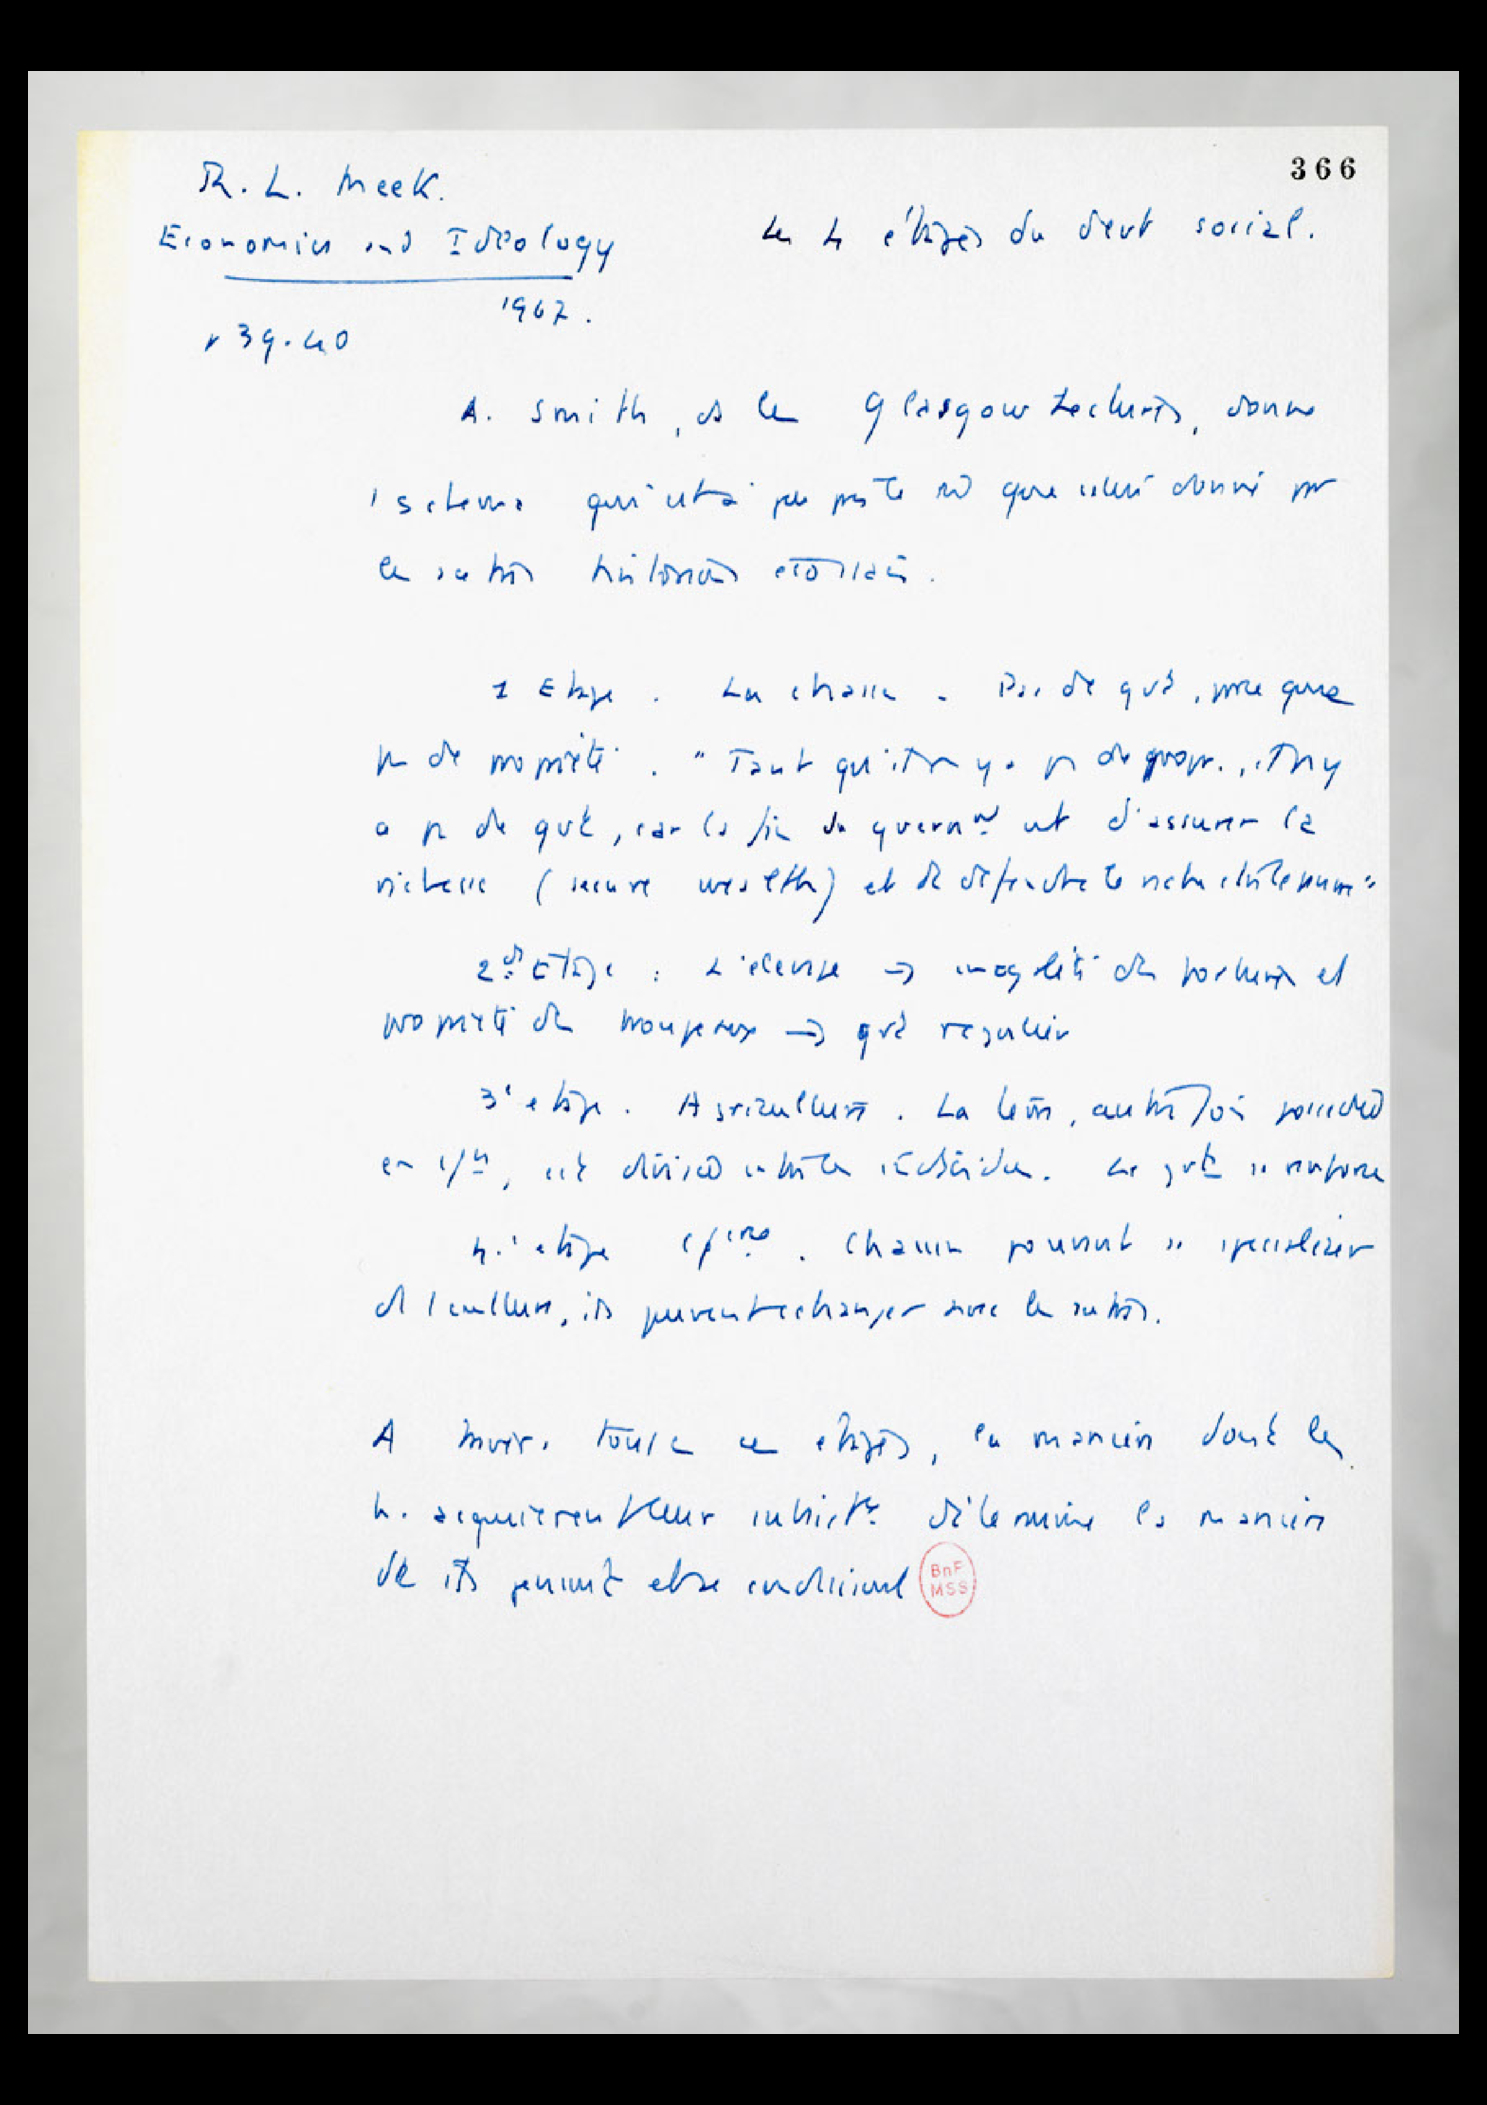 366
R. L. Meek.
Economics and Ideology
Les 4 étapes du devt social.
1967.
p 39-40
A. Smith, ds les Glasgow Lectures, donne
1 schema qui est à peu près le mê que celui donné par
les autres historiens écossais.
1 Etape. La chasse. Pas de gvt, parce que
pas de propriété. "Tant qu'il n'y a pas de propr., il n'y
a pas de gvt, car la fin du gvern^nt est d'assurer la
richesse (secure wealth) et de défendre le riche contre le pauvre"
2^d Etape : L'élevage → inégalité des fortunes et
propriété des troupeaux → gvt régulier
3e etape. Agriculture. La terre, autrefois possédée
en, est divisée entre les individus. Le gvt se renforce
4.e etape. Chacun pouvant se spécialiser
ds 1 culture, ils peuvent echanger avec les autres.
A travers toutes ces étapes, la manière dont les
h. acquièrent leur determine la manière
dt ils peuvent etre
BnF
MSS